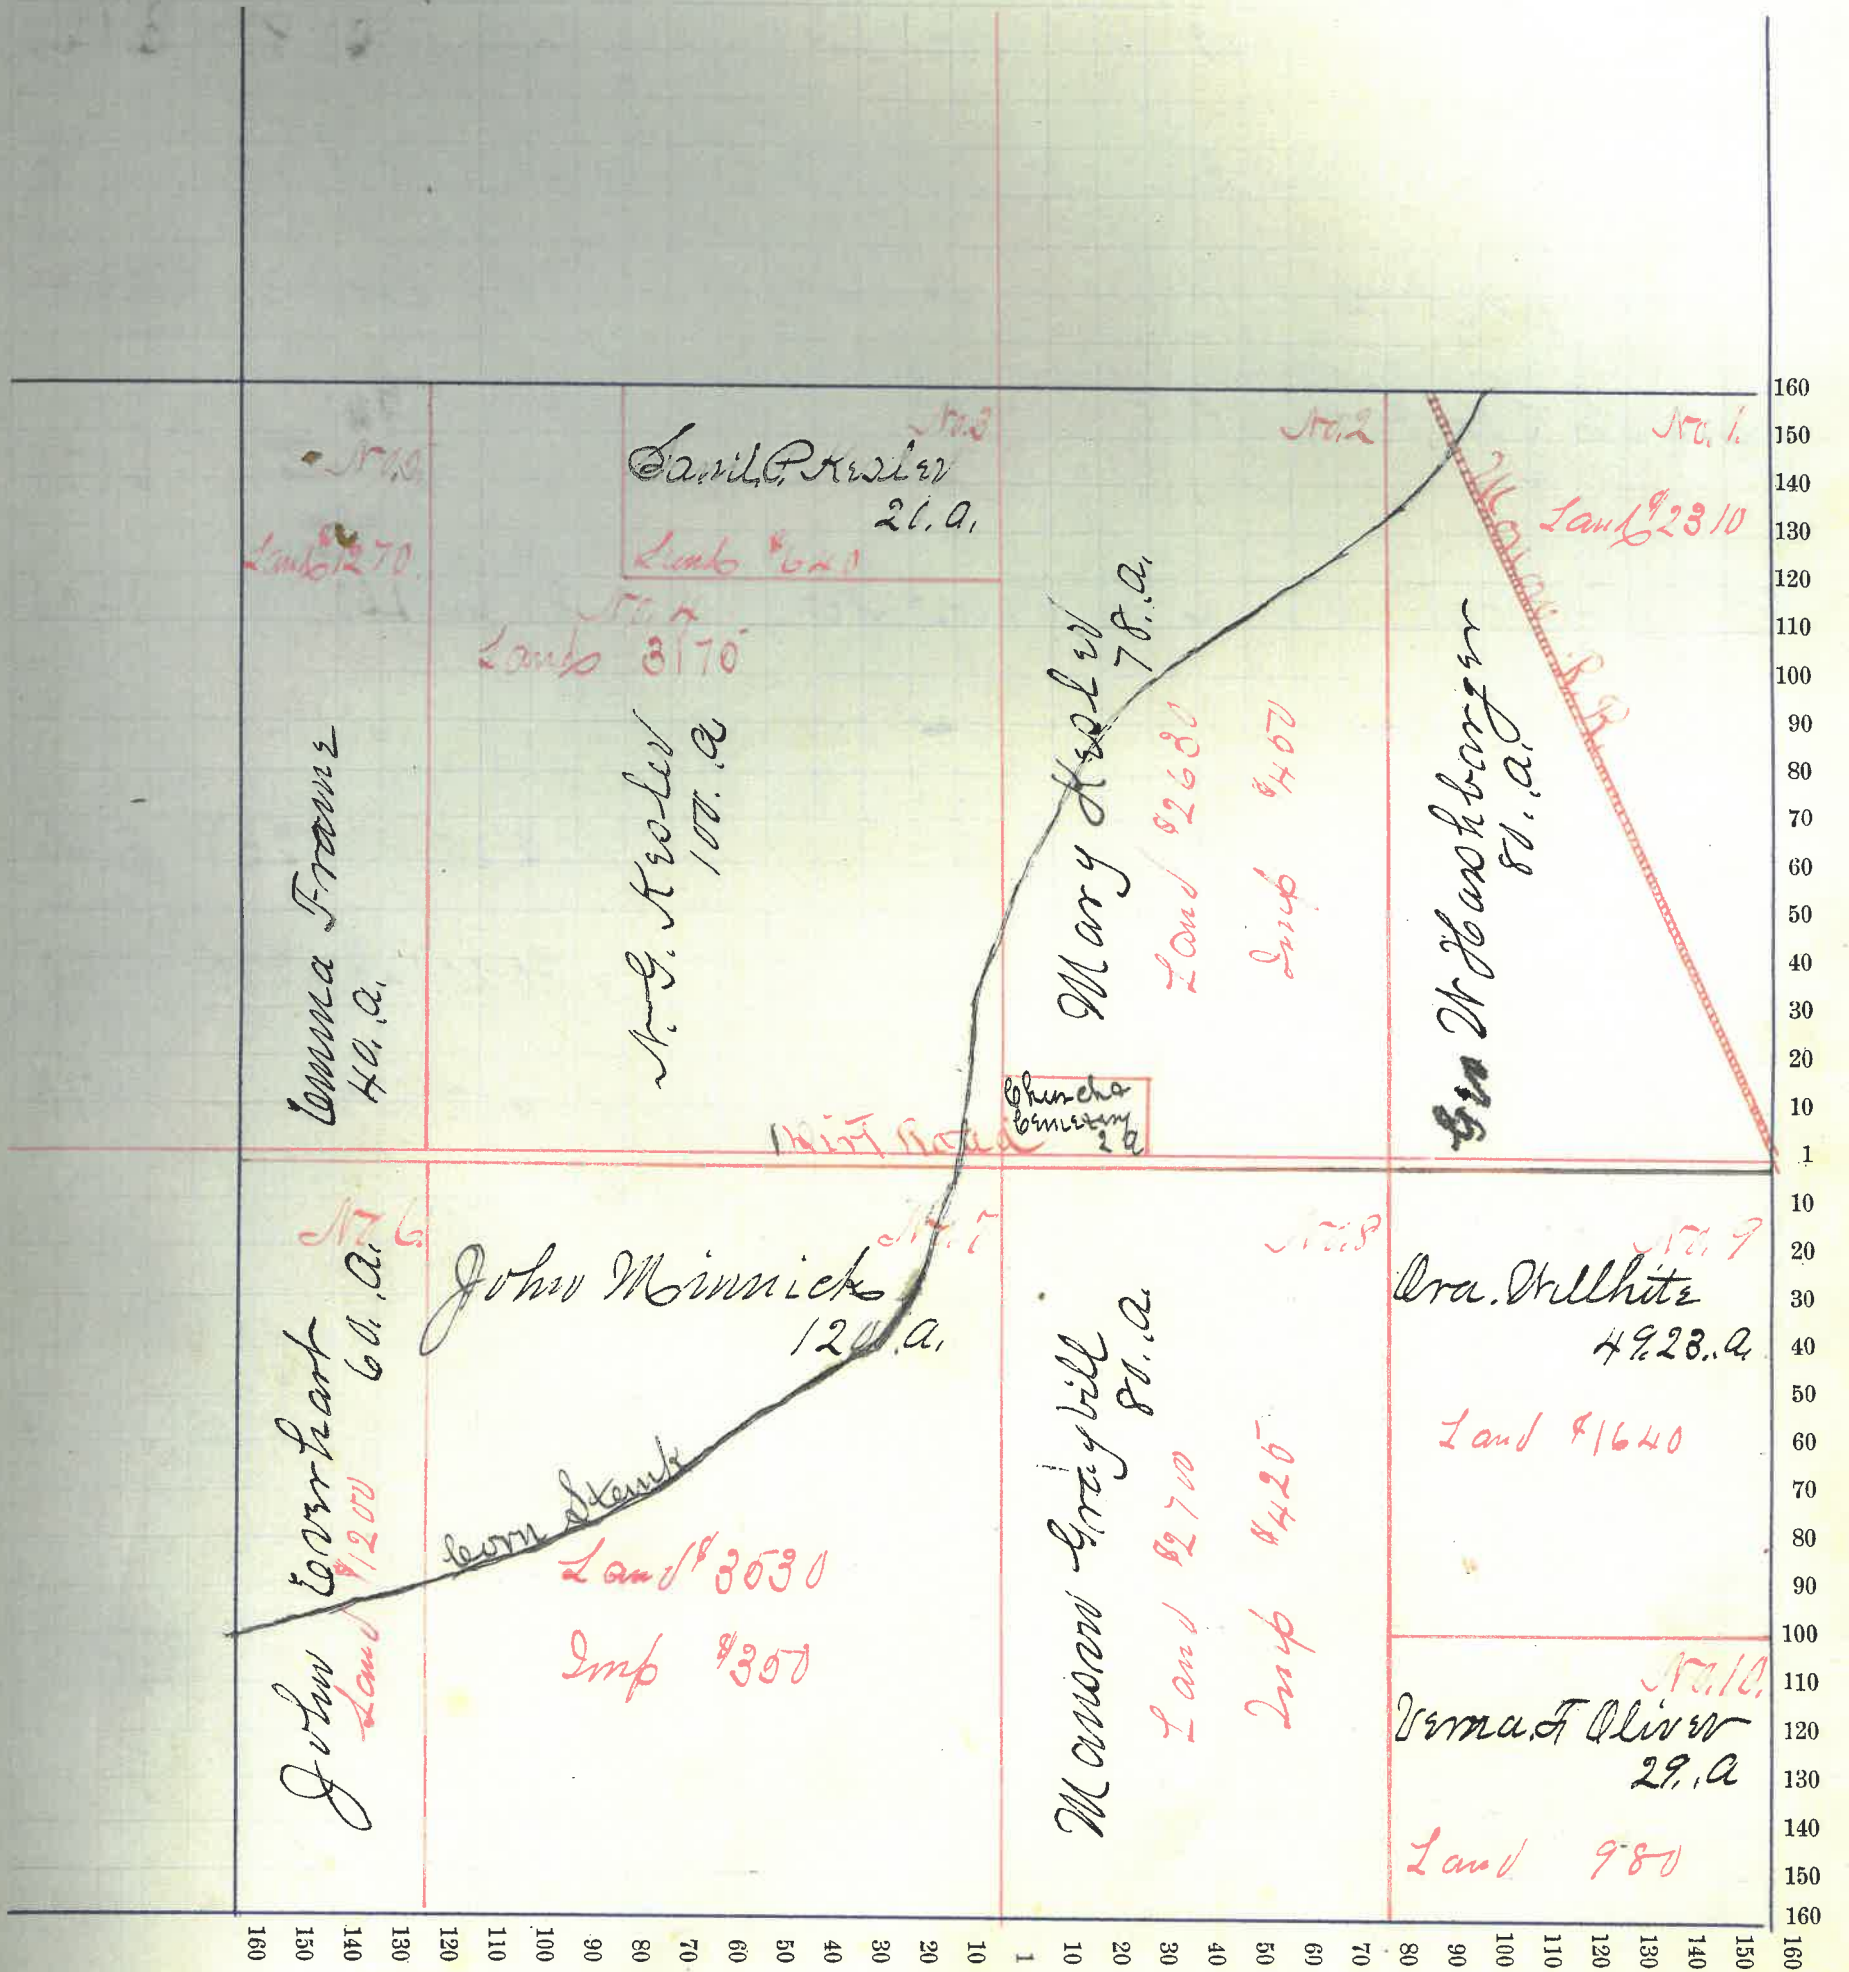 No. 5
Land $1270
Emma Frame
40. a.
No. 3
Saml. P. Kesler
21. a.
Land $640
No. 4
Land 3170
N. G. Kesler
100. a
No. 2
Mary Kesler
78. a.
Land $2630
Imp $450
Church &
Cemetery
2 a
Dirt Road
No. 1.
Land $2310
R. R.
Geo W Harshbarger
80. a.
No 6.
John Everhart
60. a.
Land $1200
No. 7
John Minnick
120. a.
Corn Stauk
Land $3530
Imp $350
No. 8
Manson Graybill
80. a.
Land $2700
Imp $425
No. 9
Ora. Willhite
49.23. a.
Land $1640
No. 10.
Verna. F Oliver
29. a
Land 980
160
150
140
130
120
110
100
90
80
70
60
50
40
30
20
10
1
10
20
30
40
50
60
70
80
90
100
110
120
130
140
150
160
160 150 140 130 120 110 100 90 80 70 60 50 40 30 20 10 1 10 20 30 40 50 60 70 80 90 100 110 120 130 140 150 160